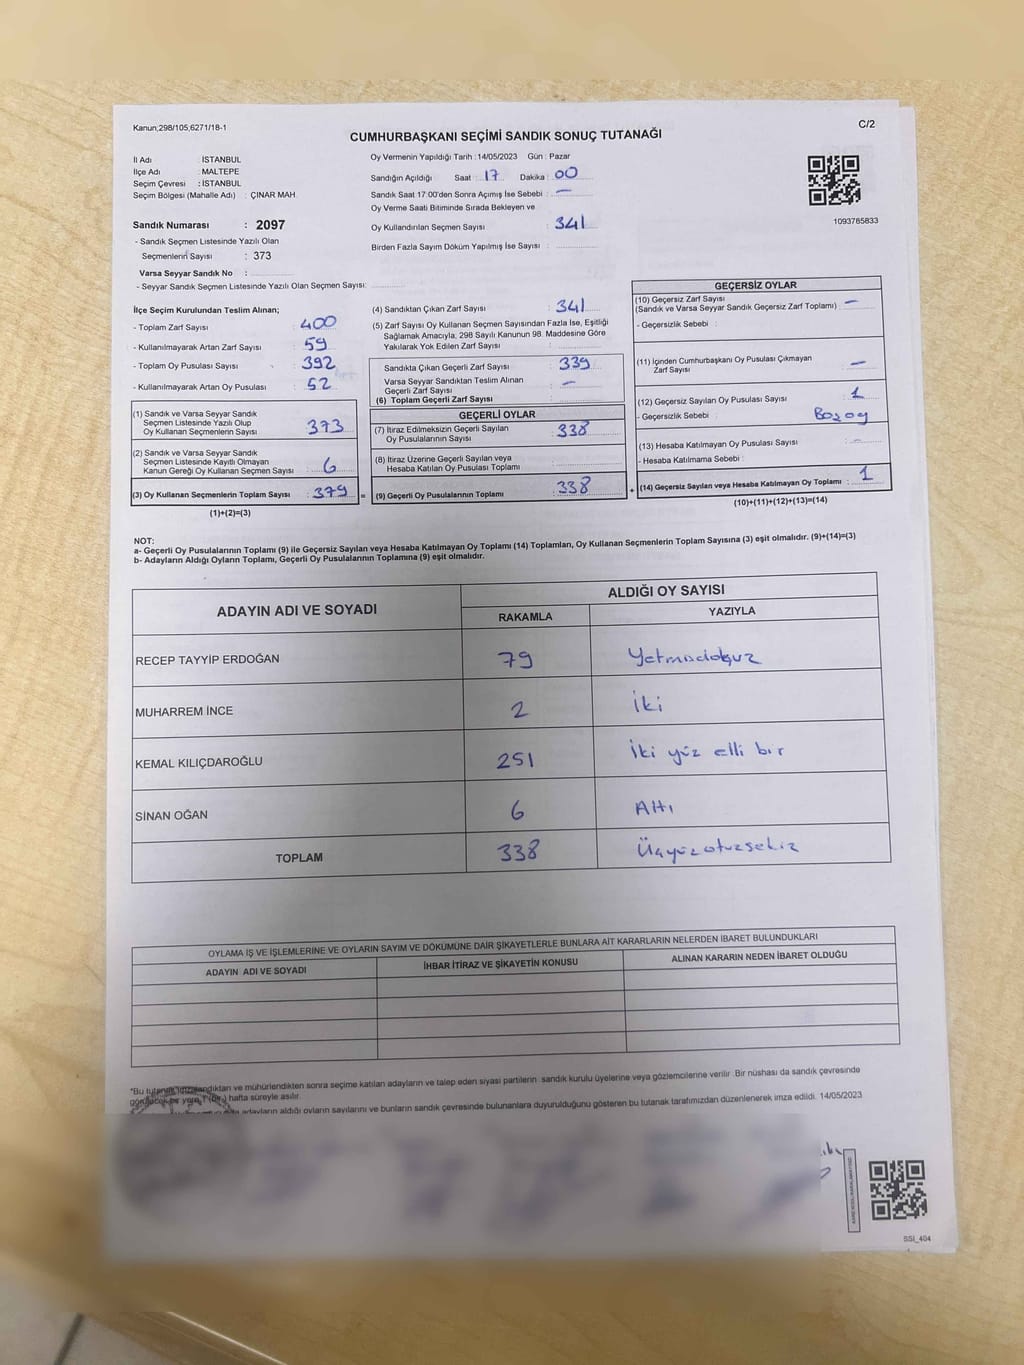 Kanun;298/105,6271/18-1
C/2
CUMHURBAŞKANI SEÇİMİ SANDIK SONUÇ TUTANAĞI
İl Adı : İSTANBUL
İlçe Adı : MALTEPE
Seçim Çevresi : İSTANBUL
Seçim Bölgesi (Mahalle Adı) : ÇINAR MAH.
Sandık Numarası : 2097
- Sandık Seçmen Listesinde Yazılı Olan
Seçmenlerin Sayısı : 373
Varsa Seyyar Sandık No :
- Seyyar Sandık Seçmen Listesinde Yazılı Olan Seçmen Sayısı:
Oy Vermenin Yapıldığı Tarih : 14/05/2023 Gün : Pazar
Sandığın Açıldığı Saat : 17 Dakika : 00
Sandık Saat 17.00'den Sonra Açımış İse Sebebi : —
Oy Verme Saati Bitiminde Sırada Bekleyen ve
Oy Kullandırılan Seçmen Sayısı : 341
Birden Fazla Sayım Döküm Yapılmış İse Sayısı :
1093785833
İlçe Seçim Kurulundan Teslim Alınan;
- Toplam Zarf Sayısı : 400
- Kullanılmayarak Artan Zarf Sayısı : 59
- Toplam Oy Pusulası Sayısı : 392
- Kullanılmayarak Artan Oy Pusulası : 52
(1) Sandık ve Varsa Seyyar Sandık
Seçmen Listesinde Yazılı Olup
Oy Kullanan Seçmenlerin Sayısı : 373
(2) Sandık ve Varsa Seyyar Sandık
Seçmen Listesinde Kayıtlı Olmayan
Kanun Gereği Oy Kullanan Seçmen Sayısı : 6
(3) Oy Kullanan Seçmenlerin Toplam Sayısı : 379 =
(1)+(2)=(3)
(4) Sandıktan Çıkan Zarf Sayısı : 341
(5) Zarf Sayısı Oy Kullanan Seçmen Sayısından Fazla İse, Eşitliği
Sağlamak Amacıyla; 298 Sayılı Kanunun 98. Maddesine Göre
Yakılarak Yok Edilen Zarf Sayısı :
Sandıkta Çıkan Geçerli Zarf Sayısı : 339
Varsa Seyyar Sandıktan Teslim Alınan
Geçerli Zarf Sayısı : —
(6) Toplam Geçerli Zarf Sayısı :
GEÇERLİ OYLAR
(7) İtiraz Edilmeksizin Geçerli Sayılan
Oy Pusulalarının Sayısı : 338
(8) İtiraz Üzerine Geçerli Sayılan veya
Hesaba Katılan Oy Pusulası Toplamı :
(9) Geçerli Oy Pusulalarının Toplamı : 338 +
GEÇERSİZ OYLAR
(10) Geçersiz Zarf Sayısı
(Sandık ve Varsa Seyyar Sandık Geçersiz Zarf Toplamı) : —
- Geçersizlik Sebebi :
(11) İçinden Cumhurbaşkanı Oy Pusulası Çıkmayan
Zarf Sayısı : —
(12) Geçersiz Sayılan Oy Pusulası Sayısı : 1
- Geçersizlik Sebebi : Boş oy
(13) Hesaba Katılmayan Oy Pusulası Sayısı : —
- Hesaba Katılmama Sebebi :
(14) Geçersiz Sayılan veya Hesaba Katılmayan Oy Toplamı : 1
(10)+(11)+(12)+(13)=(14)
NOT:
a- Geçerli Oy Pusulalarının Toplamı (9) ile Geçersiz Sayılan veya Hesaba Katılmayan Oy Toplamı (14) Toplamları, Oy Kullanan Seçmenlerin Toplam Sayısına (3) eşit olmalıdır. (9)+(14)=(3)
b- Adayların Aldığı Oyların Toplamı, Geçerli Oy Pusulalarının Toplamına (9) eşit olmalıdır.
ADAYIN ADI VE SOYADI
ALDIĞI OY SAYISI
RAKAMLA YAZIYLA
RECEP TAYYİP ERDOĞAN 79 Yetmişdokuz
MUHARREM İNCE 2 İki
KEMAL KILIÇDAROĞLU 251 İki yüz elli bir
SİNAN OĞAN 6 Altı
TOPLAM 338 Üçyüzotuzsekiz
OYLAMA İŞ VE İŞLEMLERİNE VE OYLARIN SAYIM VE DÖKÜMÜNE DAİR ŞİKAYETLERLE BUNLARA AİT KARARLARIN NELERDEN İBARET BULUNDUKLARI
ADAYIN ADI VE SOYADI İHBAR İTİRAZ VE ŞİKAYETİN KONUSU ALINAN KARARIN NEDEN İBARET OLDUĞU
*Bu tutanak imzalandıktan ve mühürlendikten sonra seçime katılan adayların ve talep eden siyasi partilerin sandık kurulu üyelerine veya gözlemcilerine verilir .Bir nüshası da sandık çevresinde
görülecek bir yere 1 (bir) hafta süreyle asılır.
adayların aldığı oyların sayılarını ve bunların sandık çevresinde bulunanlara duyurulduğunu gösteren bu tutanak tarafımızdan düzenlenerek imza edildi. 14/05/2023
SSİ_404